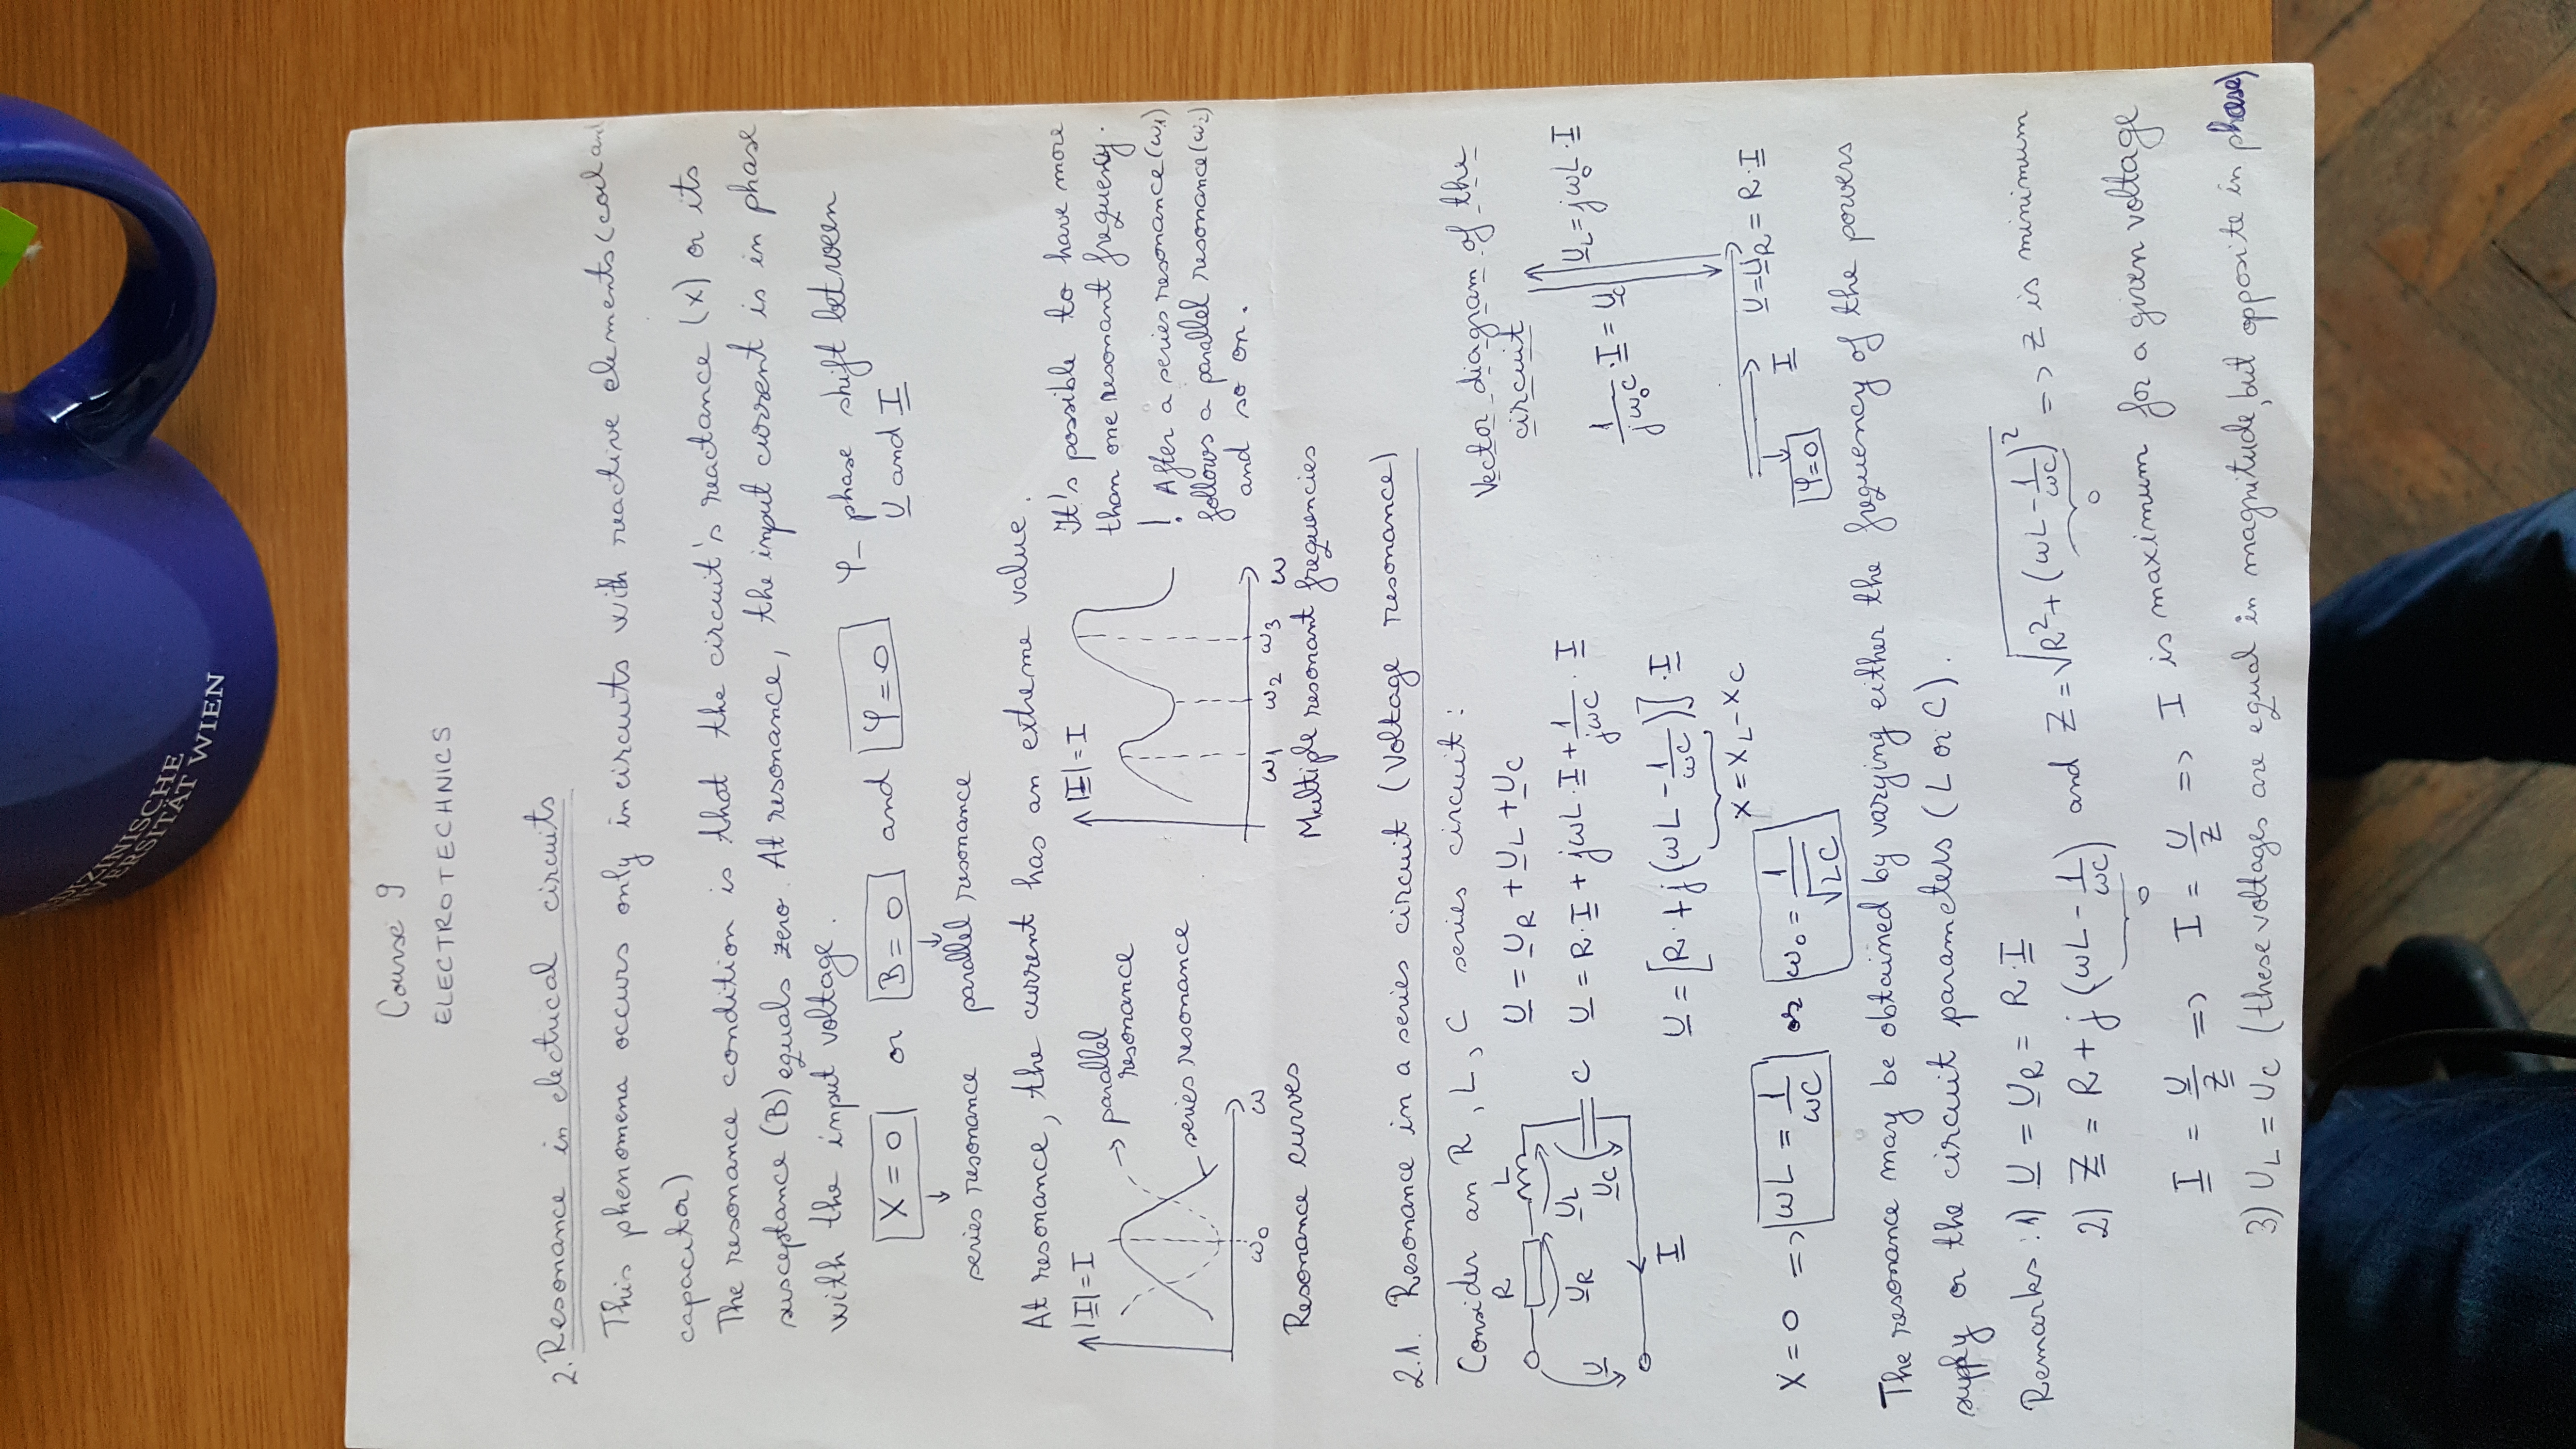 Course 9
ELECTROTECHNICS
2. Resonance in electrical circuits
This phenomena occurs only in circuits with reactive elements (coil and
capacitor)
The resonance condition is that the circuit's reactance (X) or its
susceptance (B) equals zero. At resonance, the input current is in phase
with the input voltage.
X = 0 or B = 0 and φ = 0 φ – phase shift between
U and I
series resonance parallel resonance
At resonance, the current has an extreme value.
|I| = I
→ parallel
resonance
series resonance
ω₀ ω
Resonance curves
|I| = I
ω₁ ω₂ ω₃ ω
Multiple resonant frequencies
It's possible to have more
than one resonant frequency.
! After a series resonance (ω₁)
follows a parallel resonance (ω₂)
and so on.
2.1. Resonance in a series circuit (voltage resonance)
Consider an R, L, C series circuit:
R L
U U_R U_L U_C C
I
U = U_R + U_L + U_C
U = R·I + jωL·I + 1/jωC · I
U = [R + j(ωL - 1/ωC)]·I
X = X_L - X_C
Vector diagram of the
circuit
1/jω₀C · I = U_C U_L = jω₀L·I
I U = U_R = R·I
φ = 0
X = 0 => ωL = 1/ωC or ω₀ = 1/√LC
The resonance may be obtained by varying either the frequency of the powers
supply or the circuit parameters (L or C).
Remarks: 1) U = U_R = R·I
2) Z = R + j(ωL - 1/ωC) and Z = √R² + (ωL - 1/ωC)² => Z is minimum
0 0
I = U/Z => I = U/Z => I is maximum for a given voltage
3) U_L = U_C (these voltages are equal in magnitude, but opposite in phase)
MEDIZINISCHE
UNIVERSITÄT WIEN